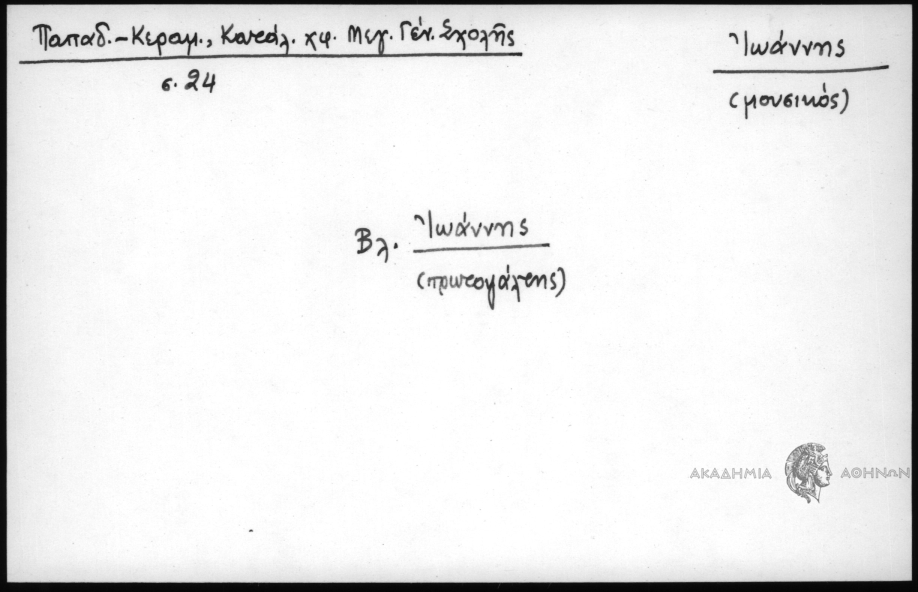 Παπαδ.-Κεραμ., Κατάλ. χφ. Μεγ. Γέν. Σχολῆς
σ. 24
Ἰωάννης
(μουσικός)
Βλ. Ἰωάννης
(πρωτοψάλτης)
ΑΚΑΔΗΜΙΑ ΑΘΗΝΩΝ